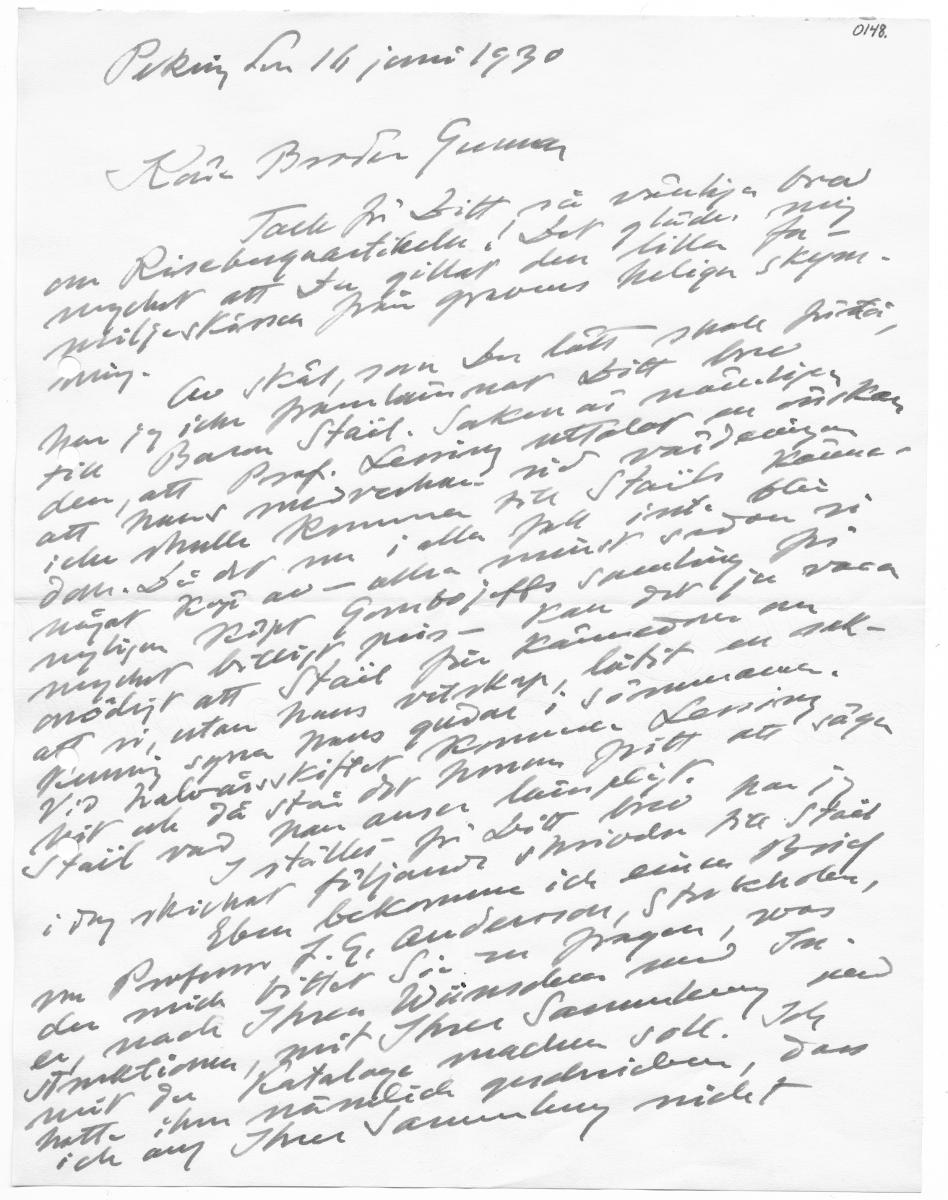 0148.
Peking den 16 juni 1930
Käre Broder Gunnar
Tack för Ditt så vänliga brev
om Risebergaartikeln! Det gläder mig
mycket att Du gillat den lilla fa-
miljeskissen från gravens heliga skym-
ning.
Av skäl, som Du lätt skall förstå,
har jag icke framlämnat Ditt brev
till Baron Staël. Saken är nämligen
den, att Prof. Lessing uttalat en önskan
att hans medverkan vid värderingen
icke skulle komma till Staëls känne-
dom. Då det nu i alla fall inte blir
något köp av – allra minst sedan vi
nyligen köpt Gombojeffs samling för
mycket billigt pris – kan det ju vara
onödigt att Staël får kännedom om
att vi, utan hans vetskap, låtit en sak-
kunnig syna hans gudar i sömmarna.
Vid halvårsskiftet kommer Lessing
hit och då står det honom fritt att säga
Staël vad han anser lämpligt.
I stället för Ditt brev har jag
i dag skickat följande skrivelse till Staël
Eben bekomme ich einen Brief
von Professor J. G. Andersson, Stockholm,
der mich bittet Sie zu fragen, was
er, nach Ihren Wünschen und In-
struktionen, mit Ihrer Sammlung und
mit der Kataloge machen soll. Ich
hatte ihm nämlich geschrieben, dass
ich auf Ihrer Sammlung nicht